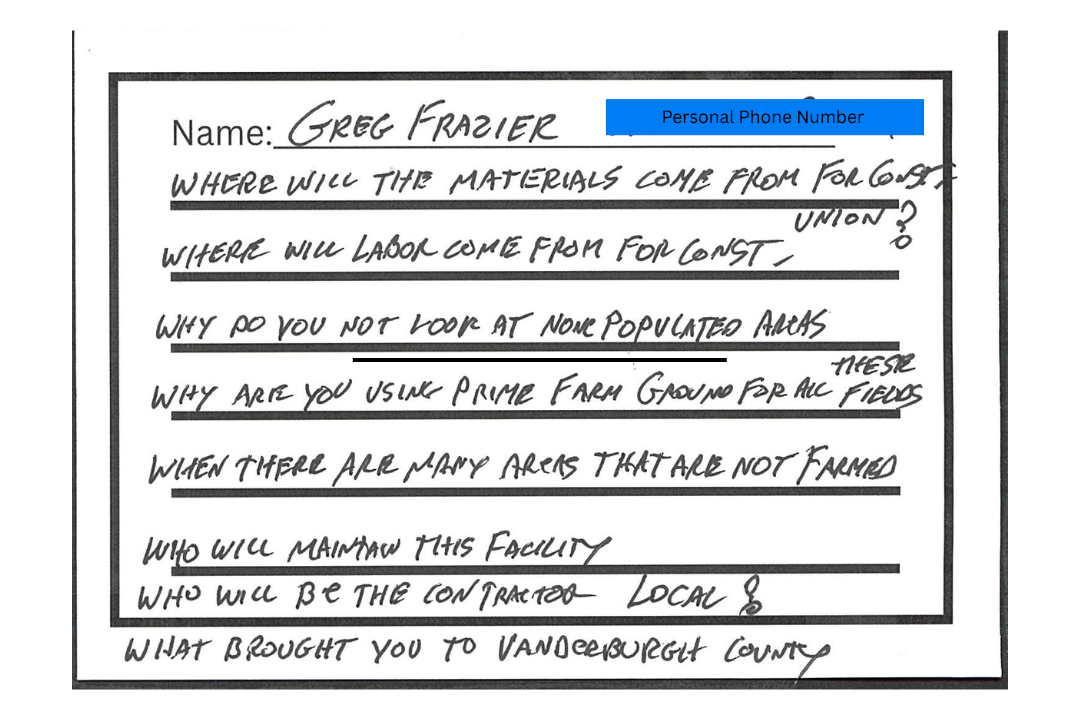 Name: GREG FRAZIER Personal Phone Number
WHERE WILL THE MATERIALS COME FROM FOR CONST.
UNION?
WHERE WILL LABOR COME FROM FOR CONST,
WHY DO YOU NOT LOOK AT NONE POPULATED AREAS
THESE
WHY ARE YOU USING PRIME FARM GROUND FOR ALL FIELDS
WHEN THERE ARE MANY AREAS THAT ARE NOT FARMED
WHO WILL MAINTAIN THIS FACILITY
WHO WILL BE THE CONTRACTOR LOCAL?
WHAT BROUGHT YOU TO VANDERBURGH COUNTY